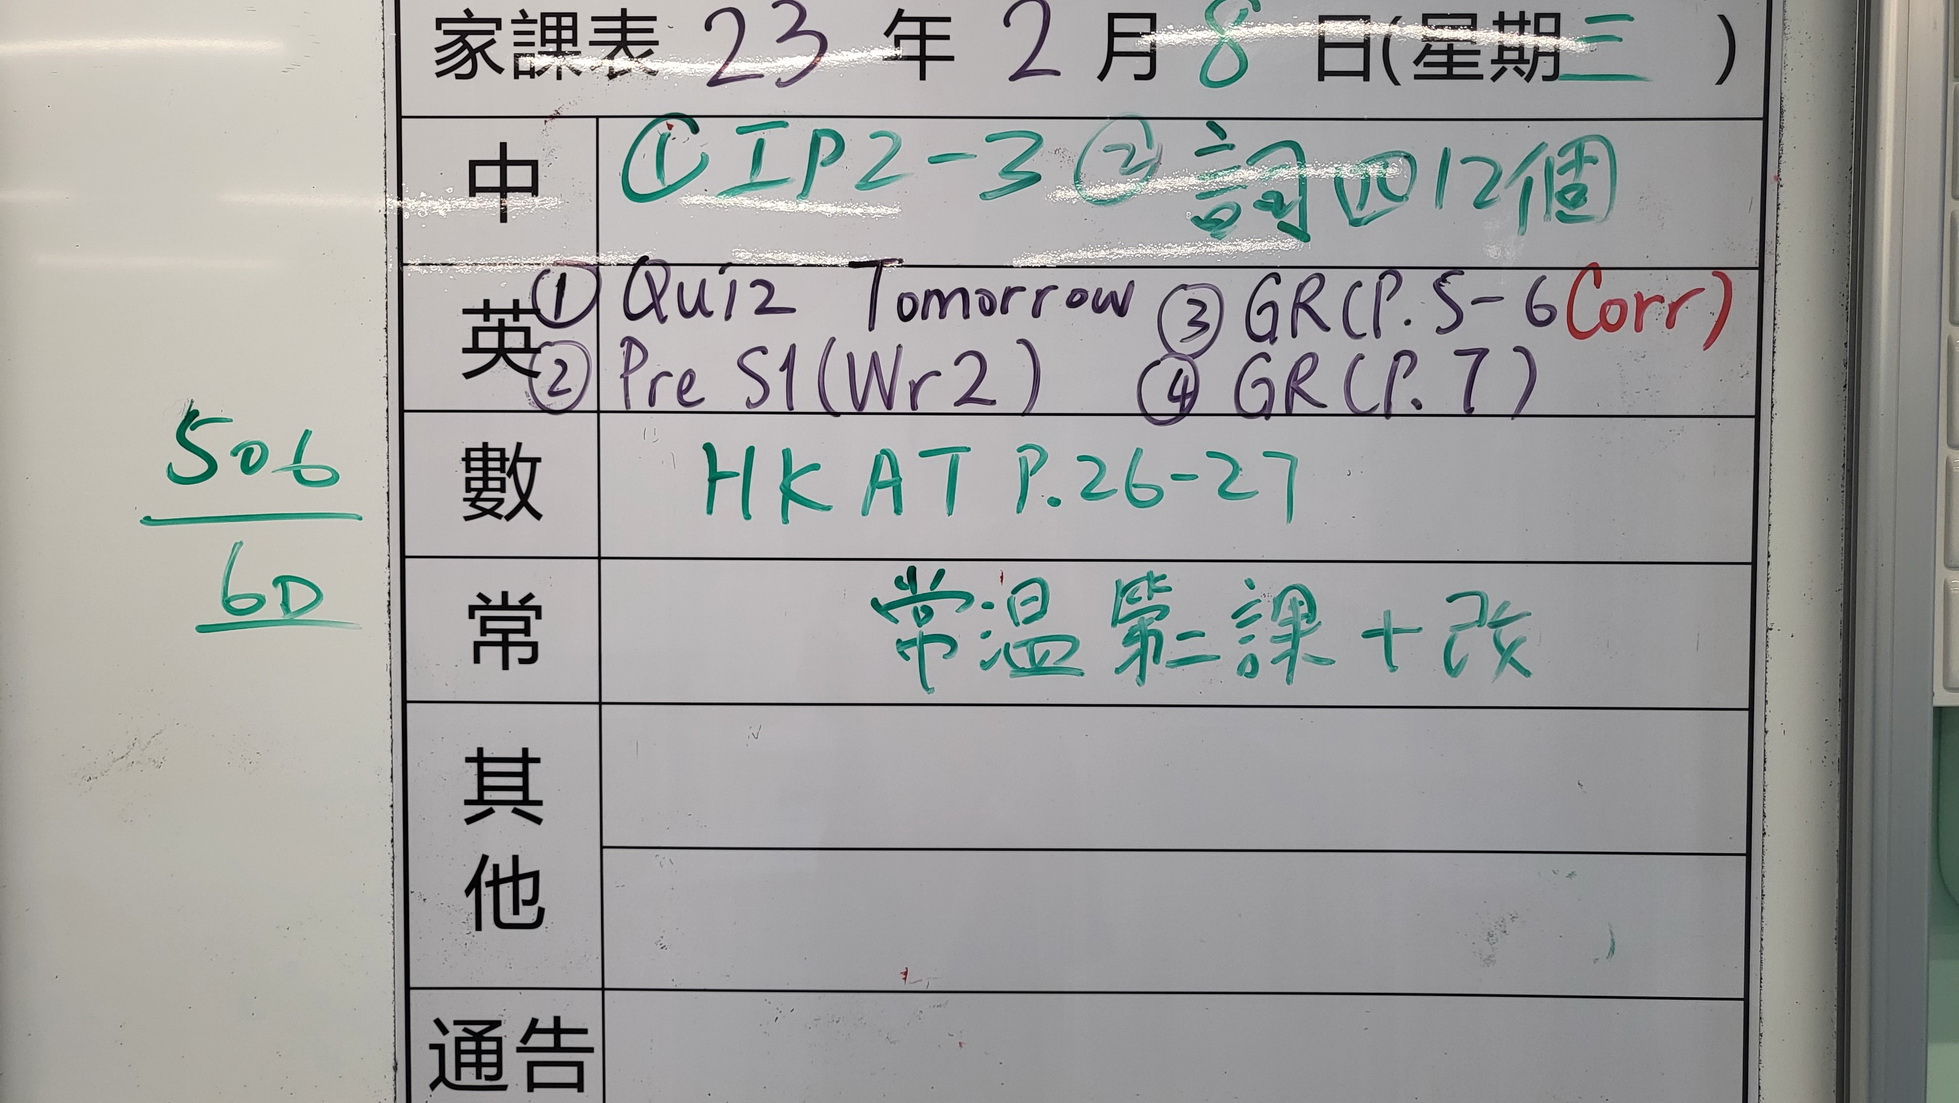 家課表 23 年 2 月 8 日(星期三 )
中 ① IP2-3 ② 詞四12個
英 ① Quiz Tomorrow ③ GR(P.5-6 Corr)
② Pre S1(Wr2) ④ GR(P.7)
506
6D
數 HKAT P.26-27
常 常溫第二課+改
其他
通告